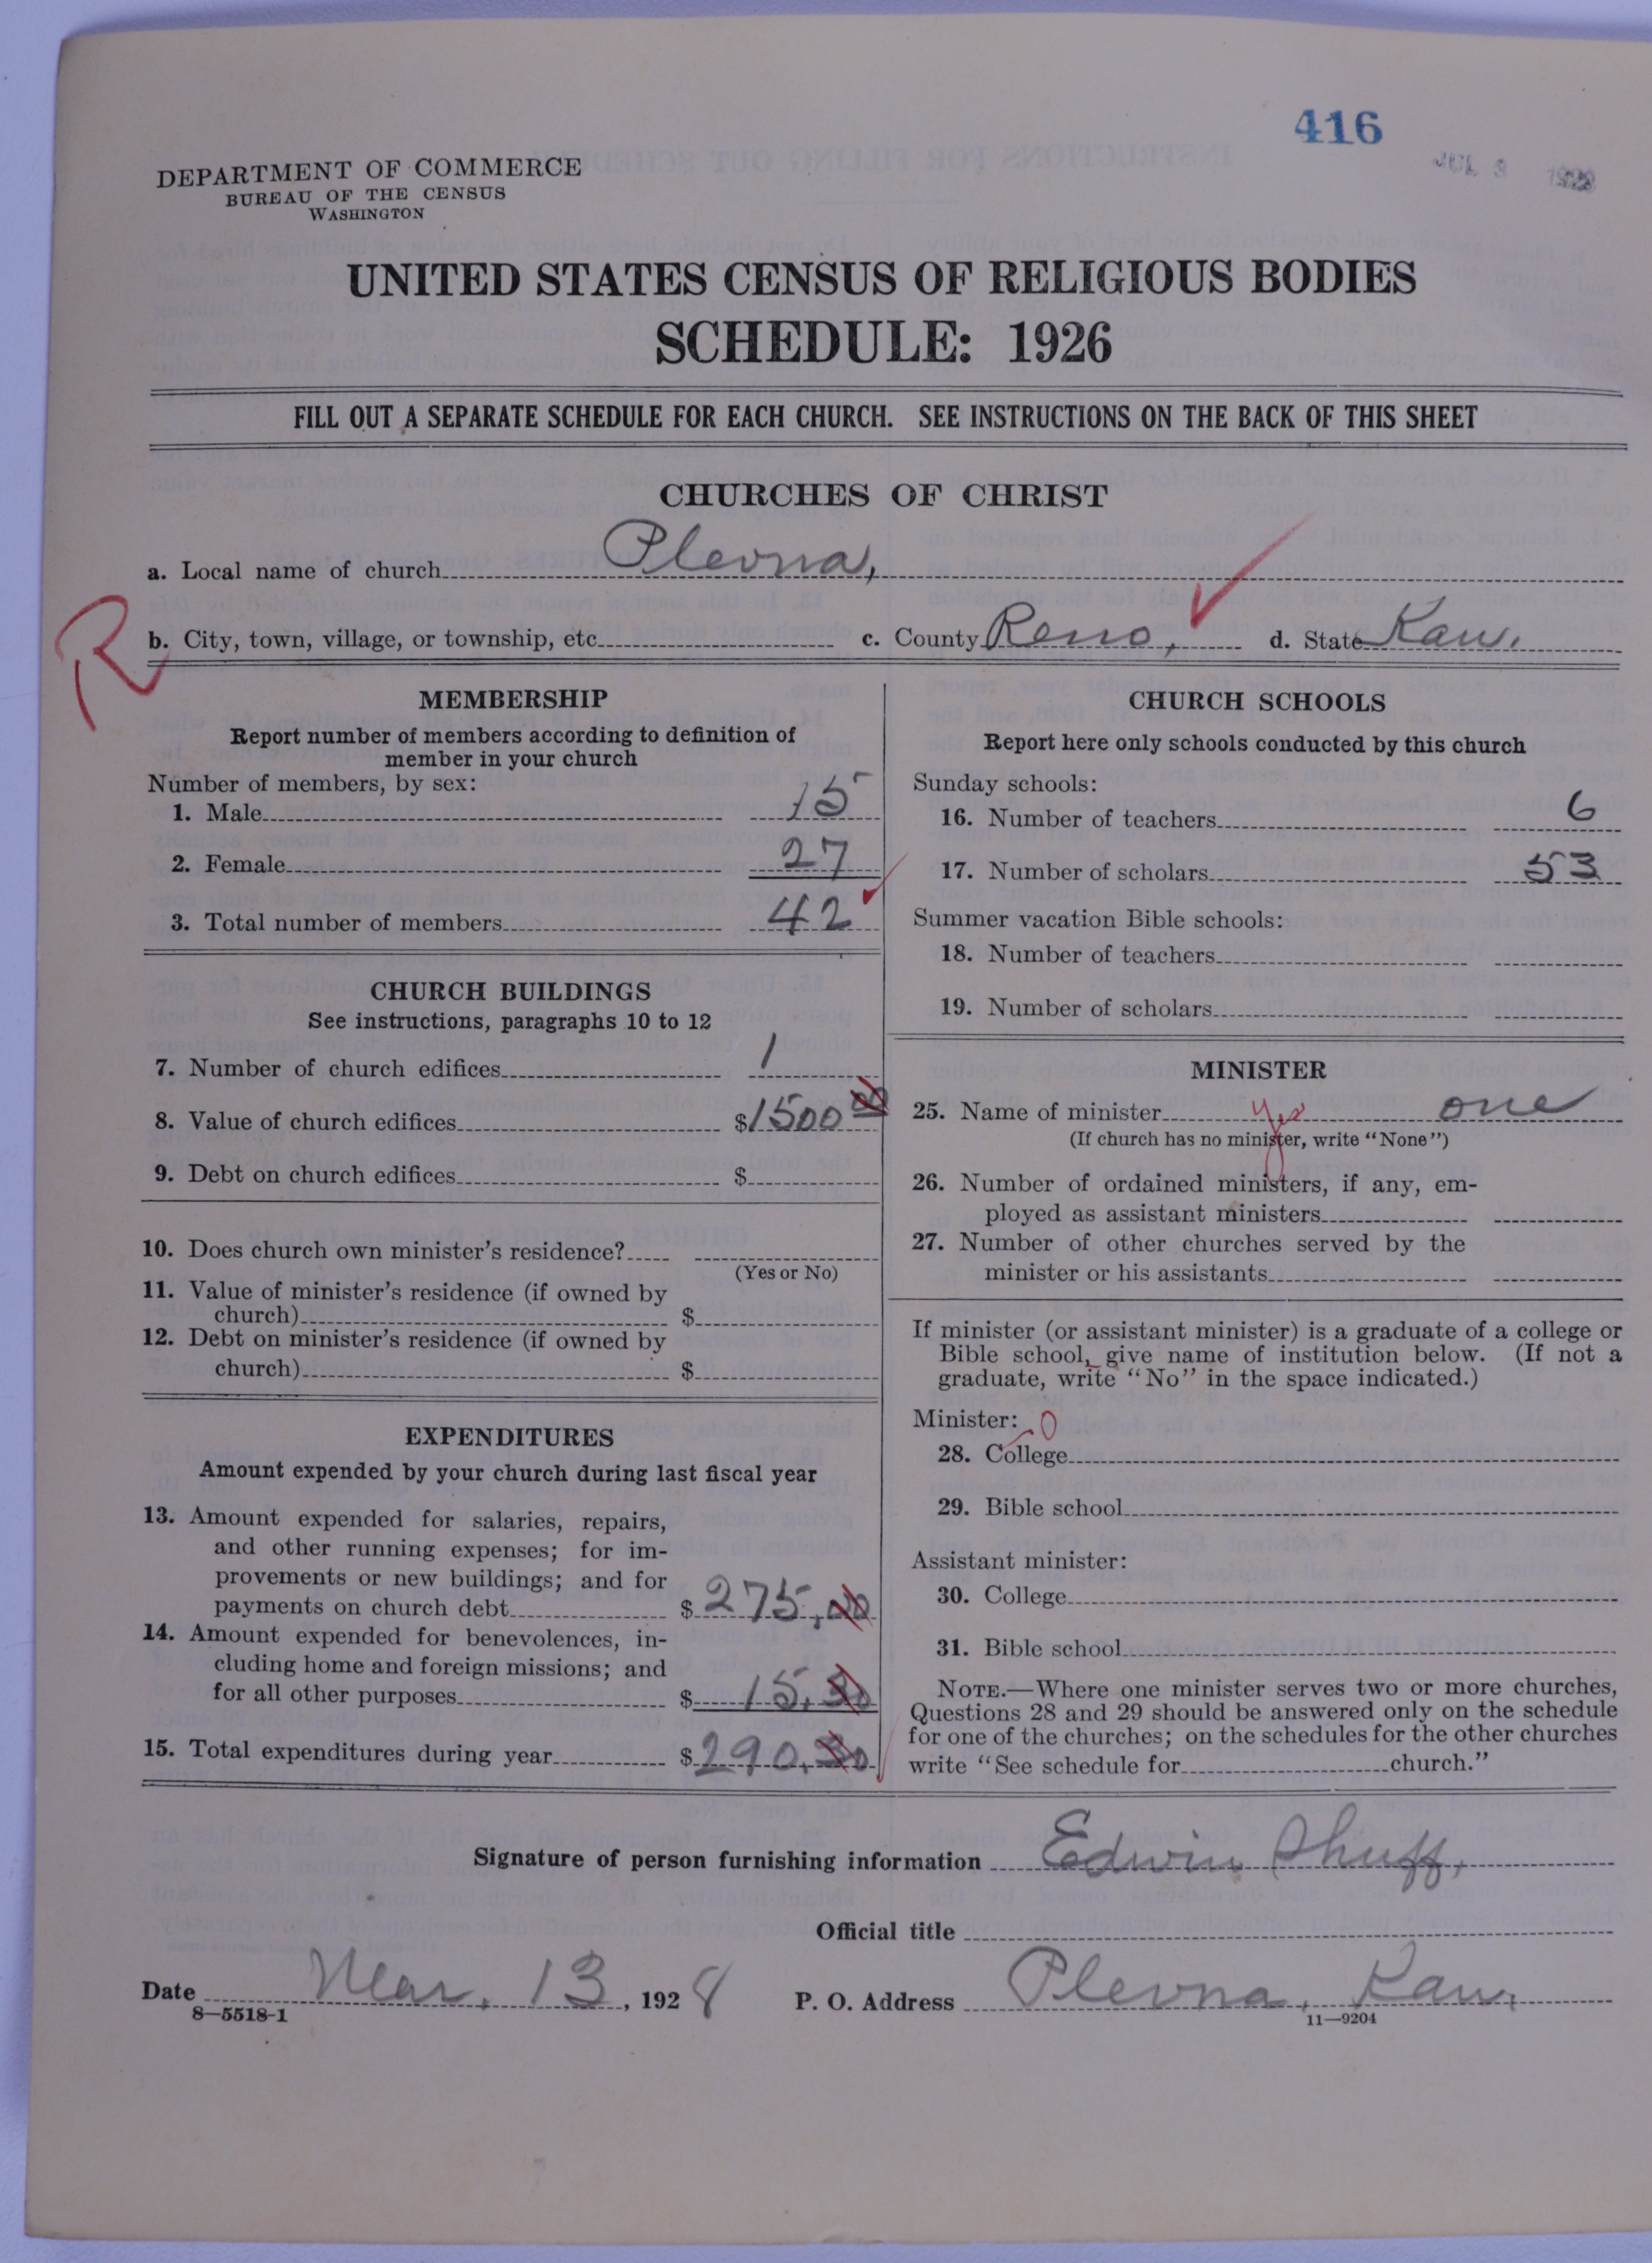 416
JUL 3 1928
DEPARTMENT OF COMMERCE
BUREAU OF THE CENSUS
WASHINGTON
UNITED STATES CENSUS OF RELIGIOUS BODIES
SCHEDULE: 1926
FILL OUT A SEPARATE SCHEDULE FOR EACH CHURCH. SEE INSTRUCTIONS ON THE BACK OF THIS SHEET
CHURCHES OF CHRIST
a. Local name of church Plevna,
R
b. City, town, village, or township, etc. c. County Reno, d. State Kan.
MEMBERSHIP
Report number of members according to definition of
member in your church
Number of members, by sex:
1. Male 15
2. Female 27
3. Total number of members 42
CHURCH BUILDINGS
See instructions, paragraphs 10 to 12
7. Number of church edifices 1
8. Value of church edifices $1500 00
9. Debt on church edifices $
10. Does church own minister's residence?
(Yes or No)
11. Value of minister's residence (if owned by
church) $
12. Debt on minister's residence (if owned by
church) $
EXPENDITURES
Amount expended by your church during last fiscal year
13. Amount expended for salaries, repairs,
and other running expenses; for im-
provements or new buildings; and for
payments on church debt $275.00
14. Amount expended for benevolences, in-
cluding home and foreign missions; and
for all other purposes $15.30
15. Total expenditures during year $290.30
CHURCH SCHOOLS
Report here only schools conducted by this church
Sunday schools:
16. Number of teachers 6
17. Number of scholars 53
Summer vacation Bible schools:
18. Number of teachers
19. Number of scholars
MINISTER
25. Name of minister Yes one
(If church has no minister, write "None")
26. Number of ordained ministers, if any, em-
ployed as assistant ministers
27. Number of other churches served by the
minister or his assistants
If minister (or assistant minister) is a graduate of a college or
Bible school, give name of institution below. (If not a
graduate, write "No" in the space indicated.)
Minister: 0
28. College
29. Bible school
Assistant minister:
30. College
31. Bible school
NOTE.—Where one minister serves two or more churches,
Questions 28 and 29 should be answered only on the schedule
for one of the churches; on the schedules for the other churches
write "See schedule for church."
Signature of person furnishing information Edwin Shuff,
Official title
Date Mar. 13, 1928 P. O. Address Plevna, Kan.
8—5518-1
11—9204